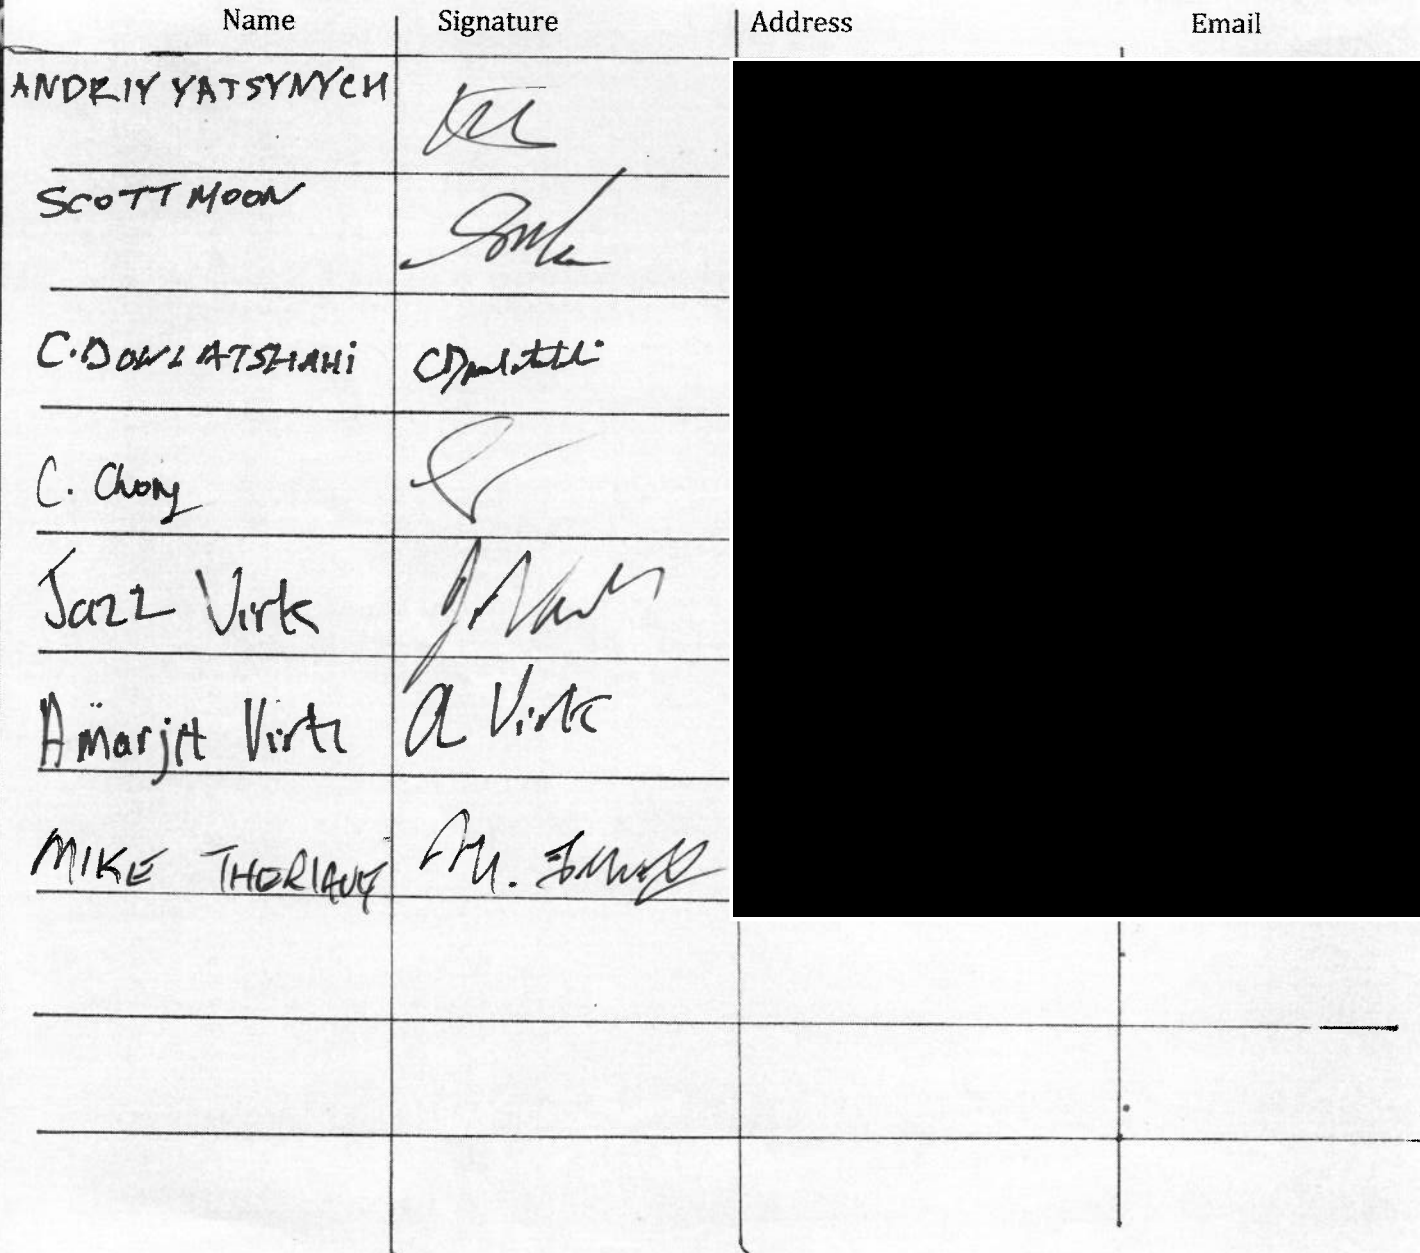 Name Signature Address Email
ANDRIY YATSYNYCH
SCOTT MOON
C. DOWLATSHAHI
C. Chong
Jazz Virk
Amarjit Virk a Virk
MIKE